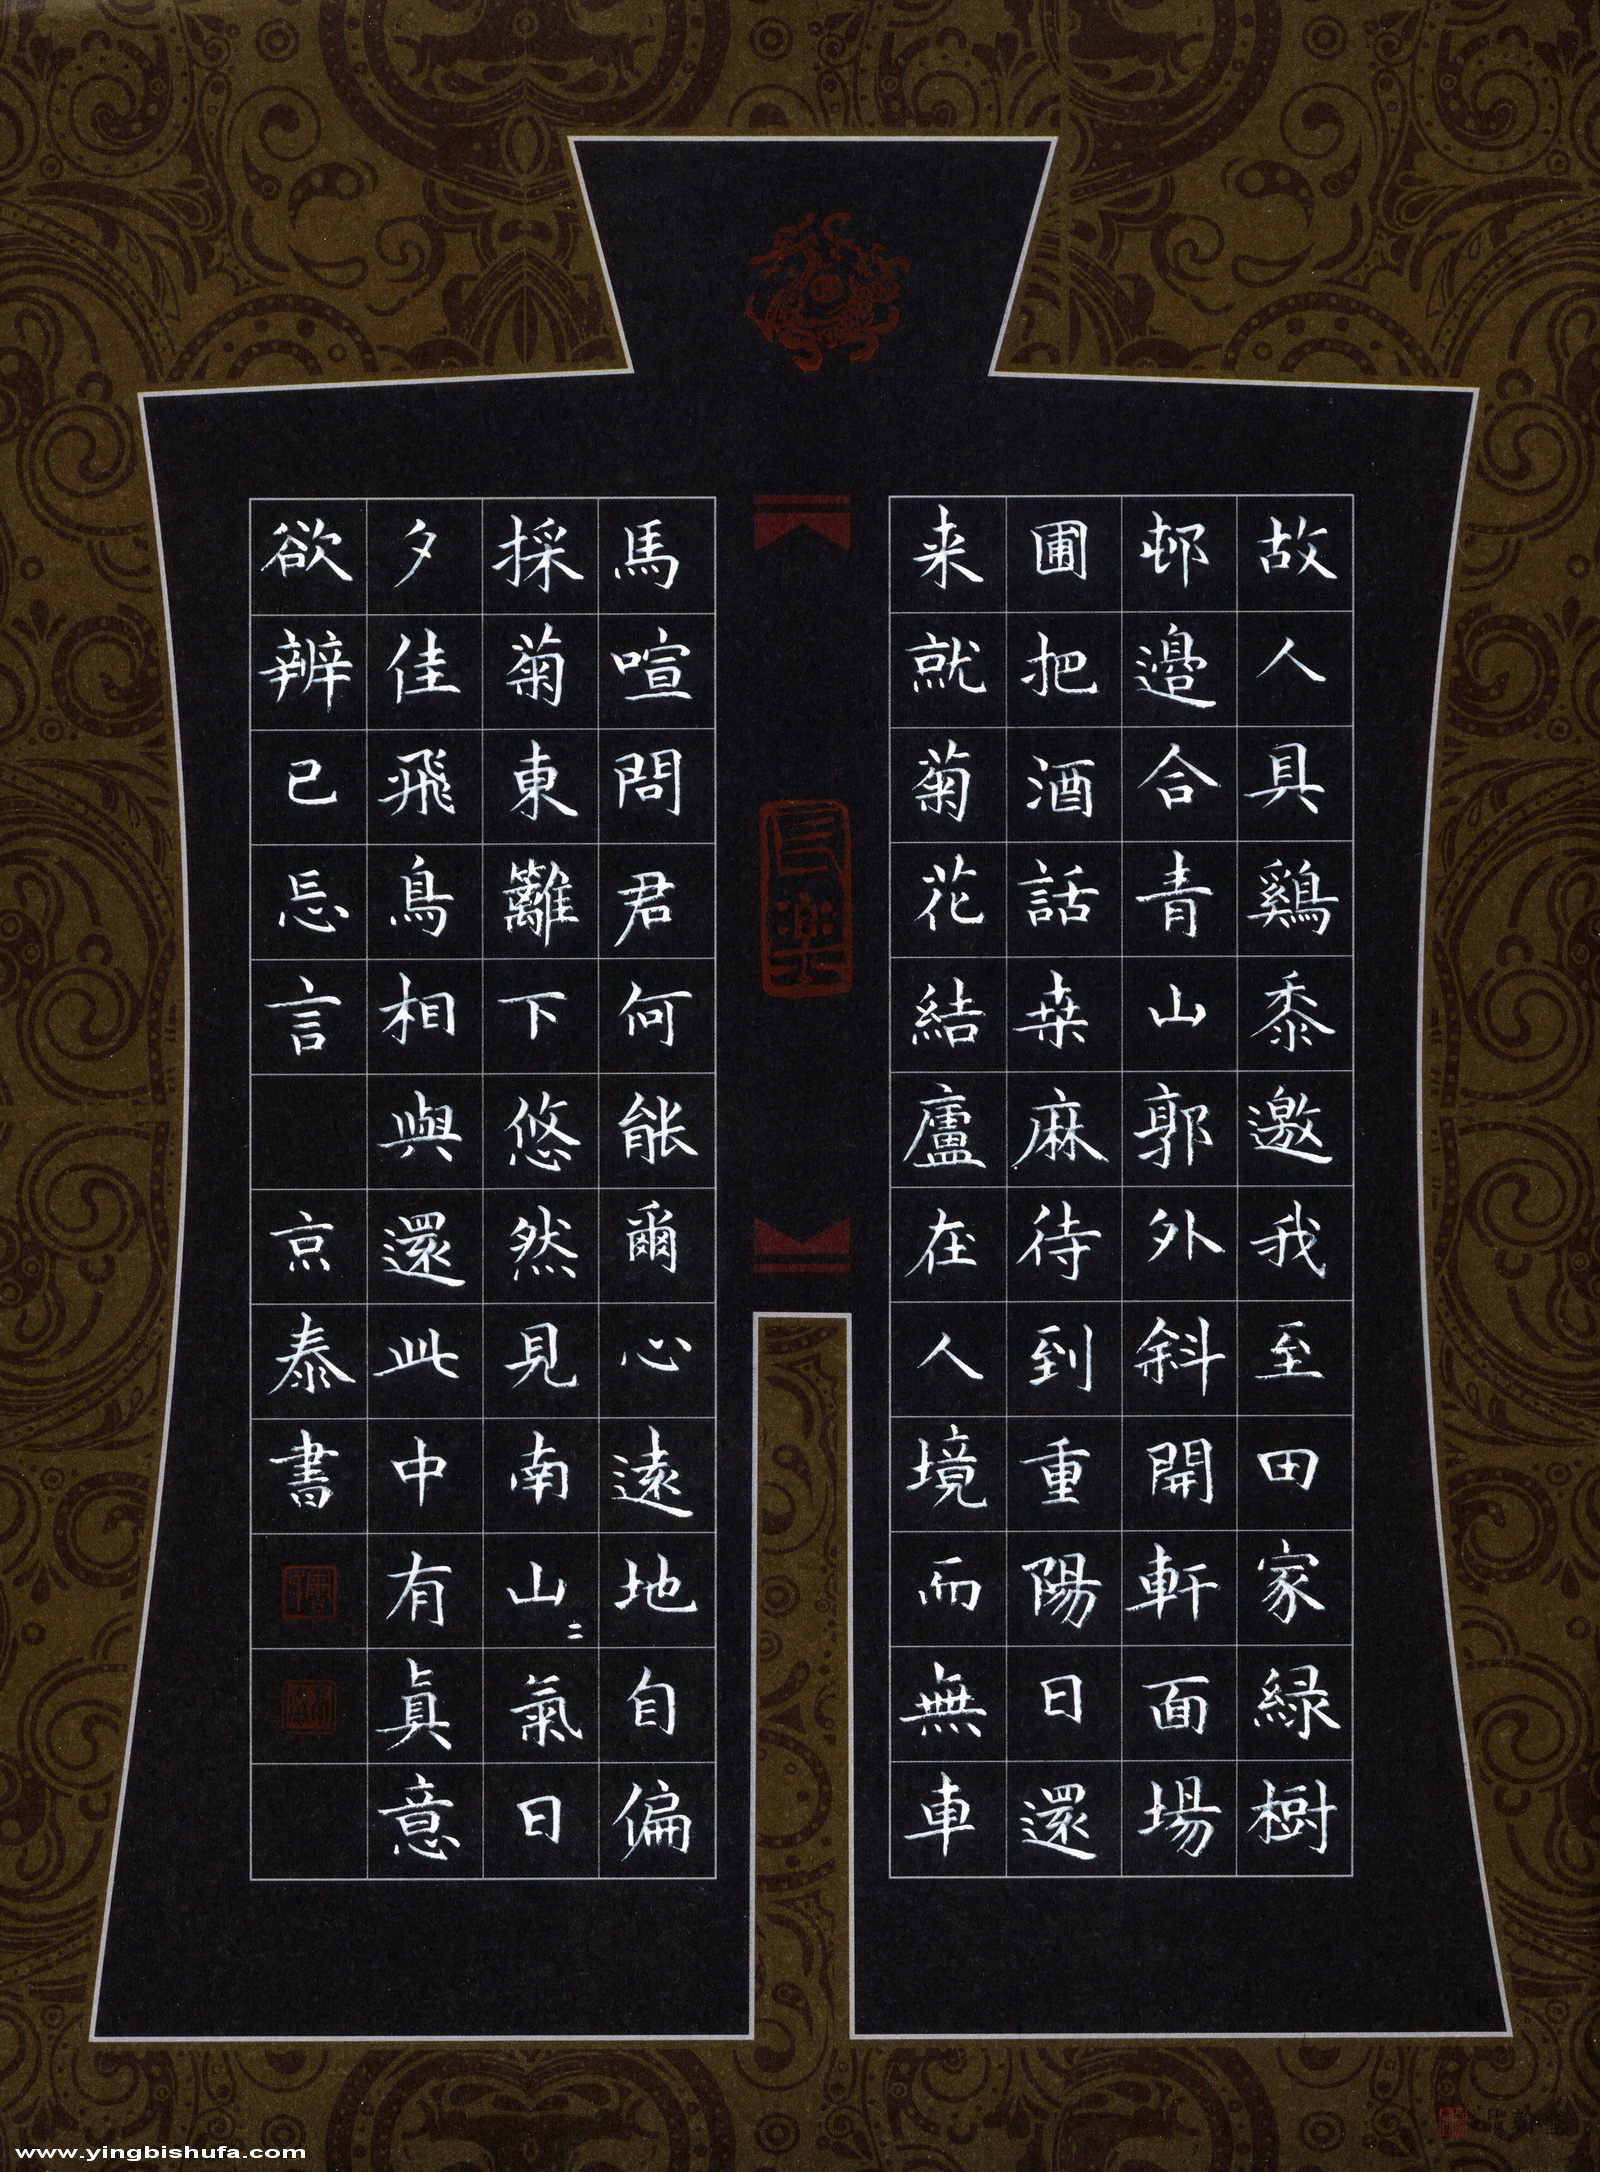 故人具鷄黍邀我至田家緑樹
邨邉合青山郭外斜開軒面場
圃把酒話桒麻待到重陽日還
来就菊花結廬在人境而無車
馬喧問君何能爾心遠地自偏
採菊東籬下悠然見南山〻氣日
夕佳飛鳥相與還此中有眞意
欲辨已忘言 京泰書
長樂
www.yingbishufa.com